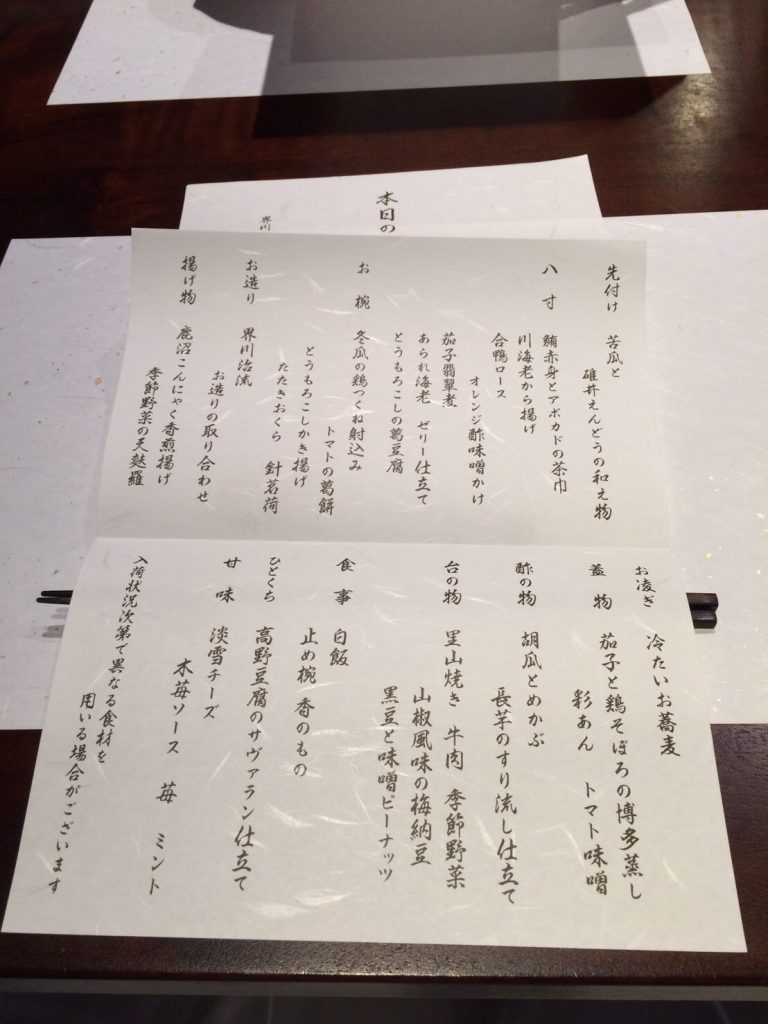 本日の
界川
先付け 苦瓜と
碓井えんどうの和え物
八寸 鮪赤身とアボカドの茶巾
川海老から揚げ
合鴨ロース
オレンジ酢味噌かけ
茄子翡翠煮
あられ海老 ゼリー仕立て
とうもろこしの葛豆腐
お椀 冬瓜の鶏つくね射込み
トマトの葛餅
とうもろこしかき揚げ
たたきおくら 針茗荷
お造り 界川治流
お造りの取り合わせ
揚げ物 鹿沼こんにゃく香煎揚げ
季節野菜の天麩羅
お凌ぎ 冷たいお蕎麦
蓋物 茄子と鶏そぼろの博多蒸し
彩あん トマト味噌
酢の物 胡瓜とめかぶ
長芋のすり流し仕立て
台の物 里山焼き 牛肉 季節野菜
山椒風味の梅納豆
黒豆と味噌ピーナッツ
食事 白飯
止め椀 香のもの
ひとくち 高野豆腐のサヴァラン仕立て
甘味 淡雪チーズ
木苺ソース 苺 ミント
入荷状況次第で異なる食材を
用いる場合がございます